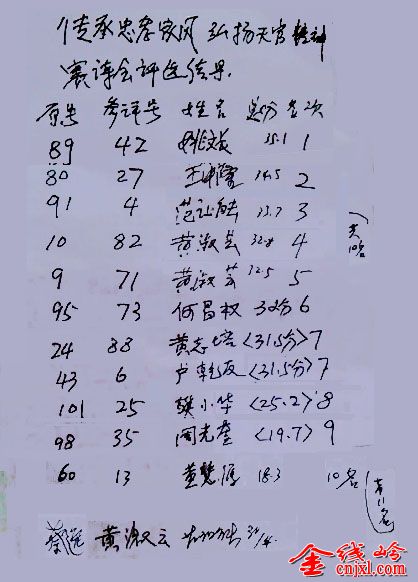 传承忠孝家风 弘扬天官精神
赛诗会评选结果
原号 参评号 姓名 总分 名次
89 42 姚文成 35.1 1
80 27 王 34.5 2
91 4 范让能 33.7 3
10 82 黄淑芸 32.8 4
9 71 黄淑芸 32.5 5
95 73 何昌权 32分 6
24 88 黄志培 <31.5分> 7
43 6 卢乾友 <31.5分> 7
101 25 樊小华 <25.2> 8
98 35 周光奎 <19.7> 9
60 13 黄慧源 18.3 10名
黄淑云
金线岭
cnjxl.com